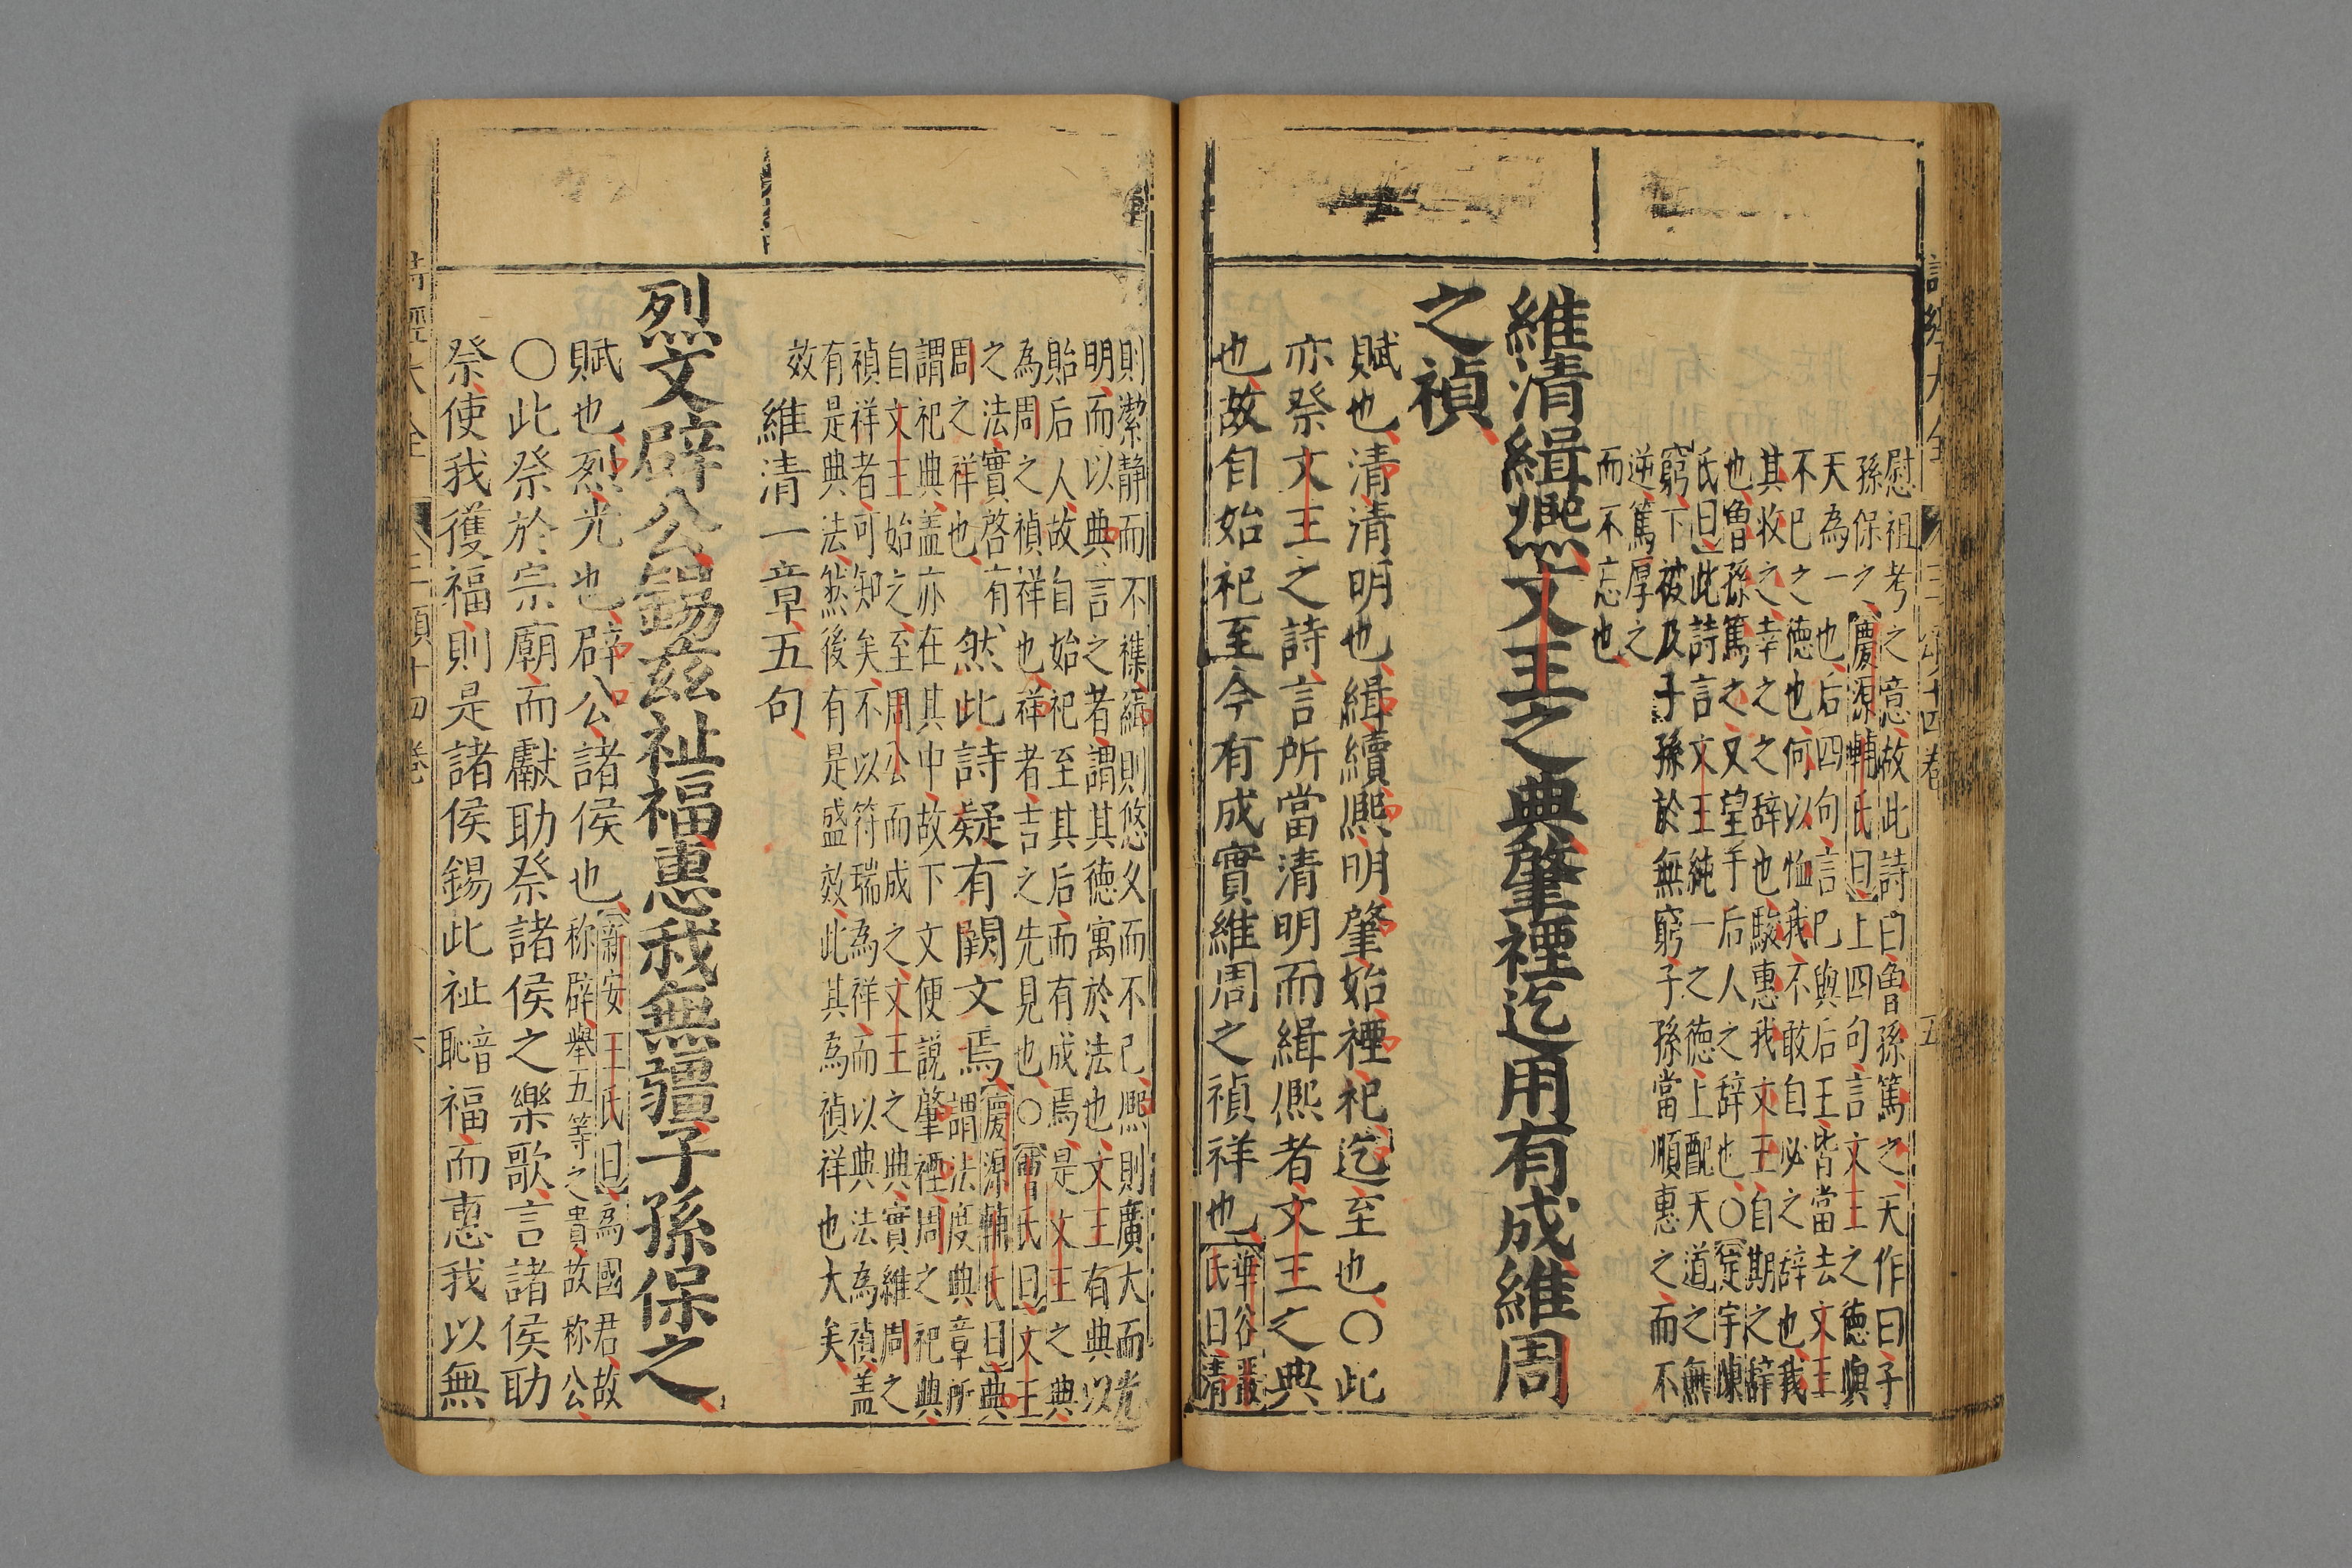 慰祖考之意故此詩曰魯孫篤之天作曰子
孫保之慶源輔氏曰上四句言文王之德與
天為一也后四句言已與后王皆當去文王
不已之德也何以恤我不敢自必之辞也我
其收之幸之之辞也駿惠我文王自期之辞
也魯孫篤之又望乎后人之辞也○定宇陳
氏曰此詩言文王純一之德上配天道之無
窮下被及子孫於無窮子孫當順惠之而不
逆篤厚之
而不忘也
維清緝熈文王之典肇禋迄用有成維周
之禎
賦也清清明也緝續熈明肇始禋祀迄至也○此
亦祭文王之詩言所當清明而緝熈者文王之典
也故自始祀至今有成實維周之禎祥也華谷嚴
氏曰清
則潔静而不襍緝則悠久而不已熈則廣大而光
明而以典言之者謂其德寓於法也文王有典以
貽后人故自始祀至其后而有成焉是文王之典
為周之禎祥也祥者吉之先見也○曾氏曰文王
之法實啓有
周之祥也
然此詩疑有闕文焉慶源輔氏曰典
謂法度典章所
謂祀典盖亦在其中故下文便說肇禋周之祀典
自文王始之至周公而成之文王之典實維周之
禎祥者可知矣不以符瑞為祥而以典法為禎盖
有是典法然後有是盛效此其為禎祥也大矣
效
維清一章五句
烈文辟公錫兹祉福惠我無疆子孫保之
賦也烈光也辟公諸侯也新安王氏曰為國君故
称辟舉五等之貴故称公
○此祭於宗廟而獻助祭諸侯之樂歌言諸侯助
祭使我獲福則是諸侯錫此祉音恥福而惠我以無